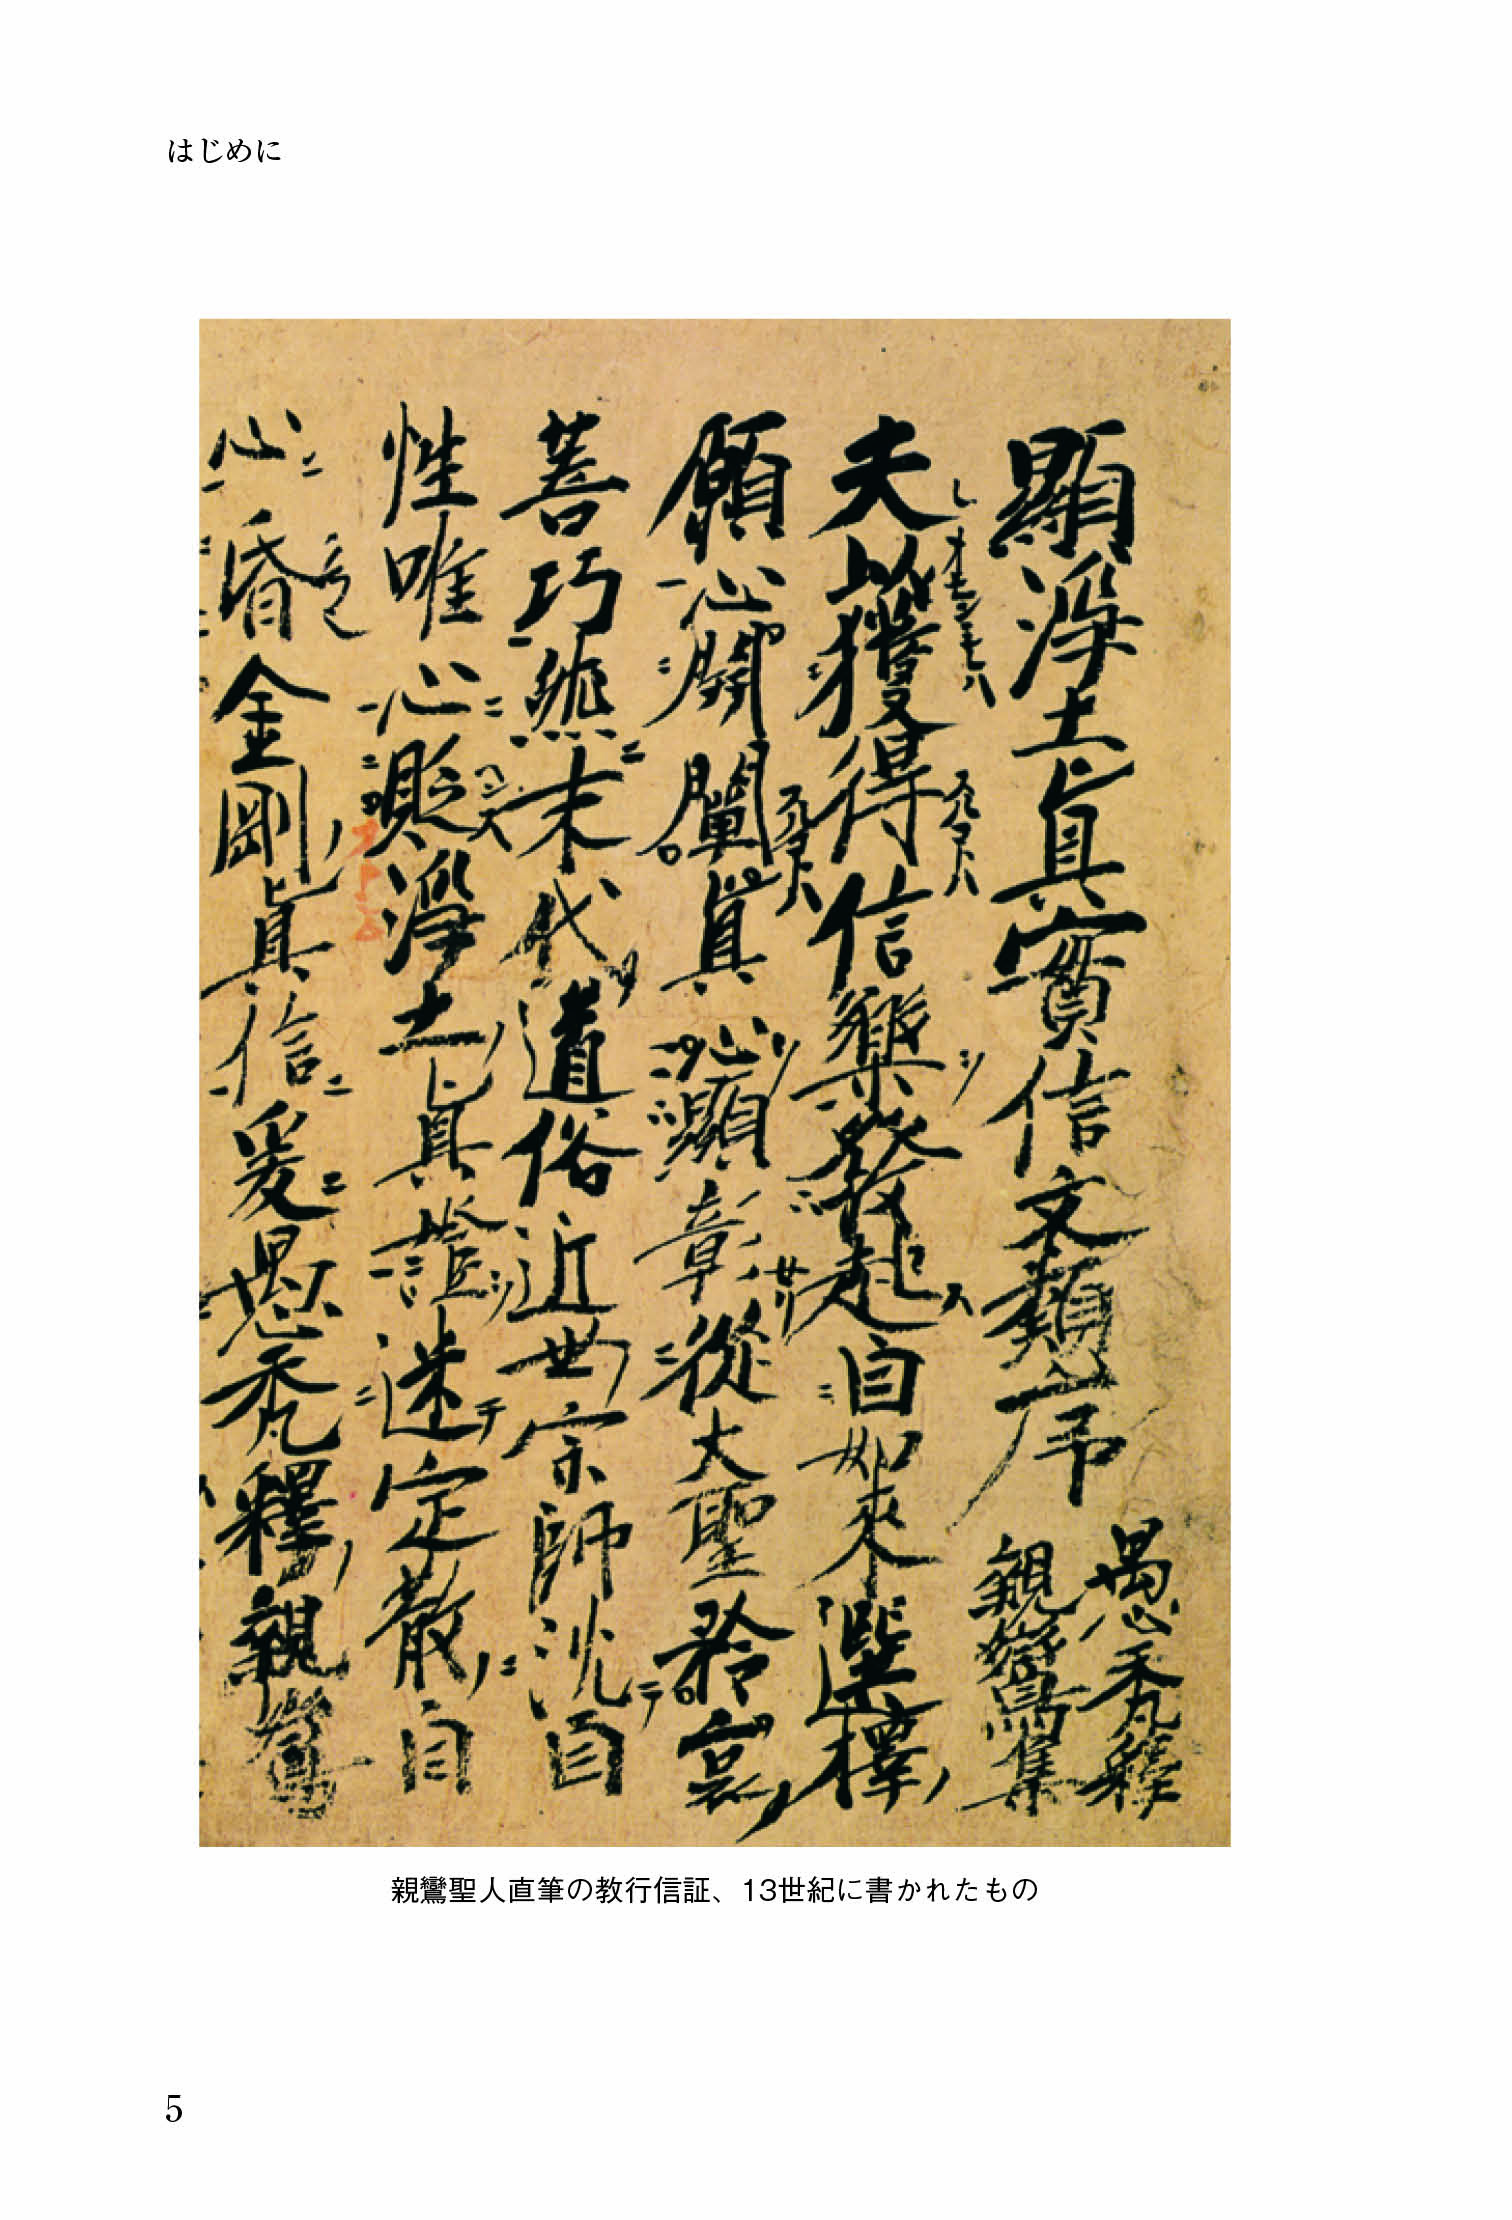 はじめに
顯浄土真實信文類序
愚禿釋
親鸞集
夫以獲得信樂發起自如來選擇
願心開闡真心顯彰從大聖矜哀
善巧然末代道俗近世宗師沈自
性唯心貶淨土真證迷定散自
心昏金剛真信爰愚禿釋親鸞
親鸞聖人直筆の教行信証、13世紀に書かれたもの
5